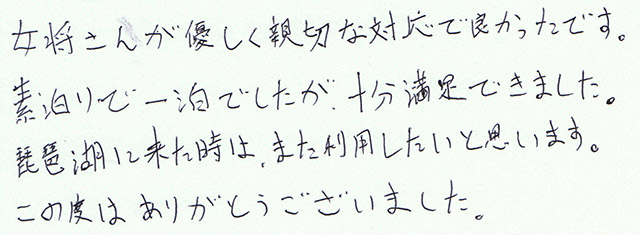 女将さんが優しく親切な対応で良かったです。
素泊りで一泊でしたが、十分満足できました。
琵琶湖に来た時は、また利用したいと思います。
この度はありがとうございました。